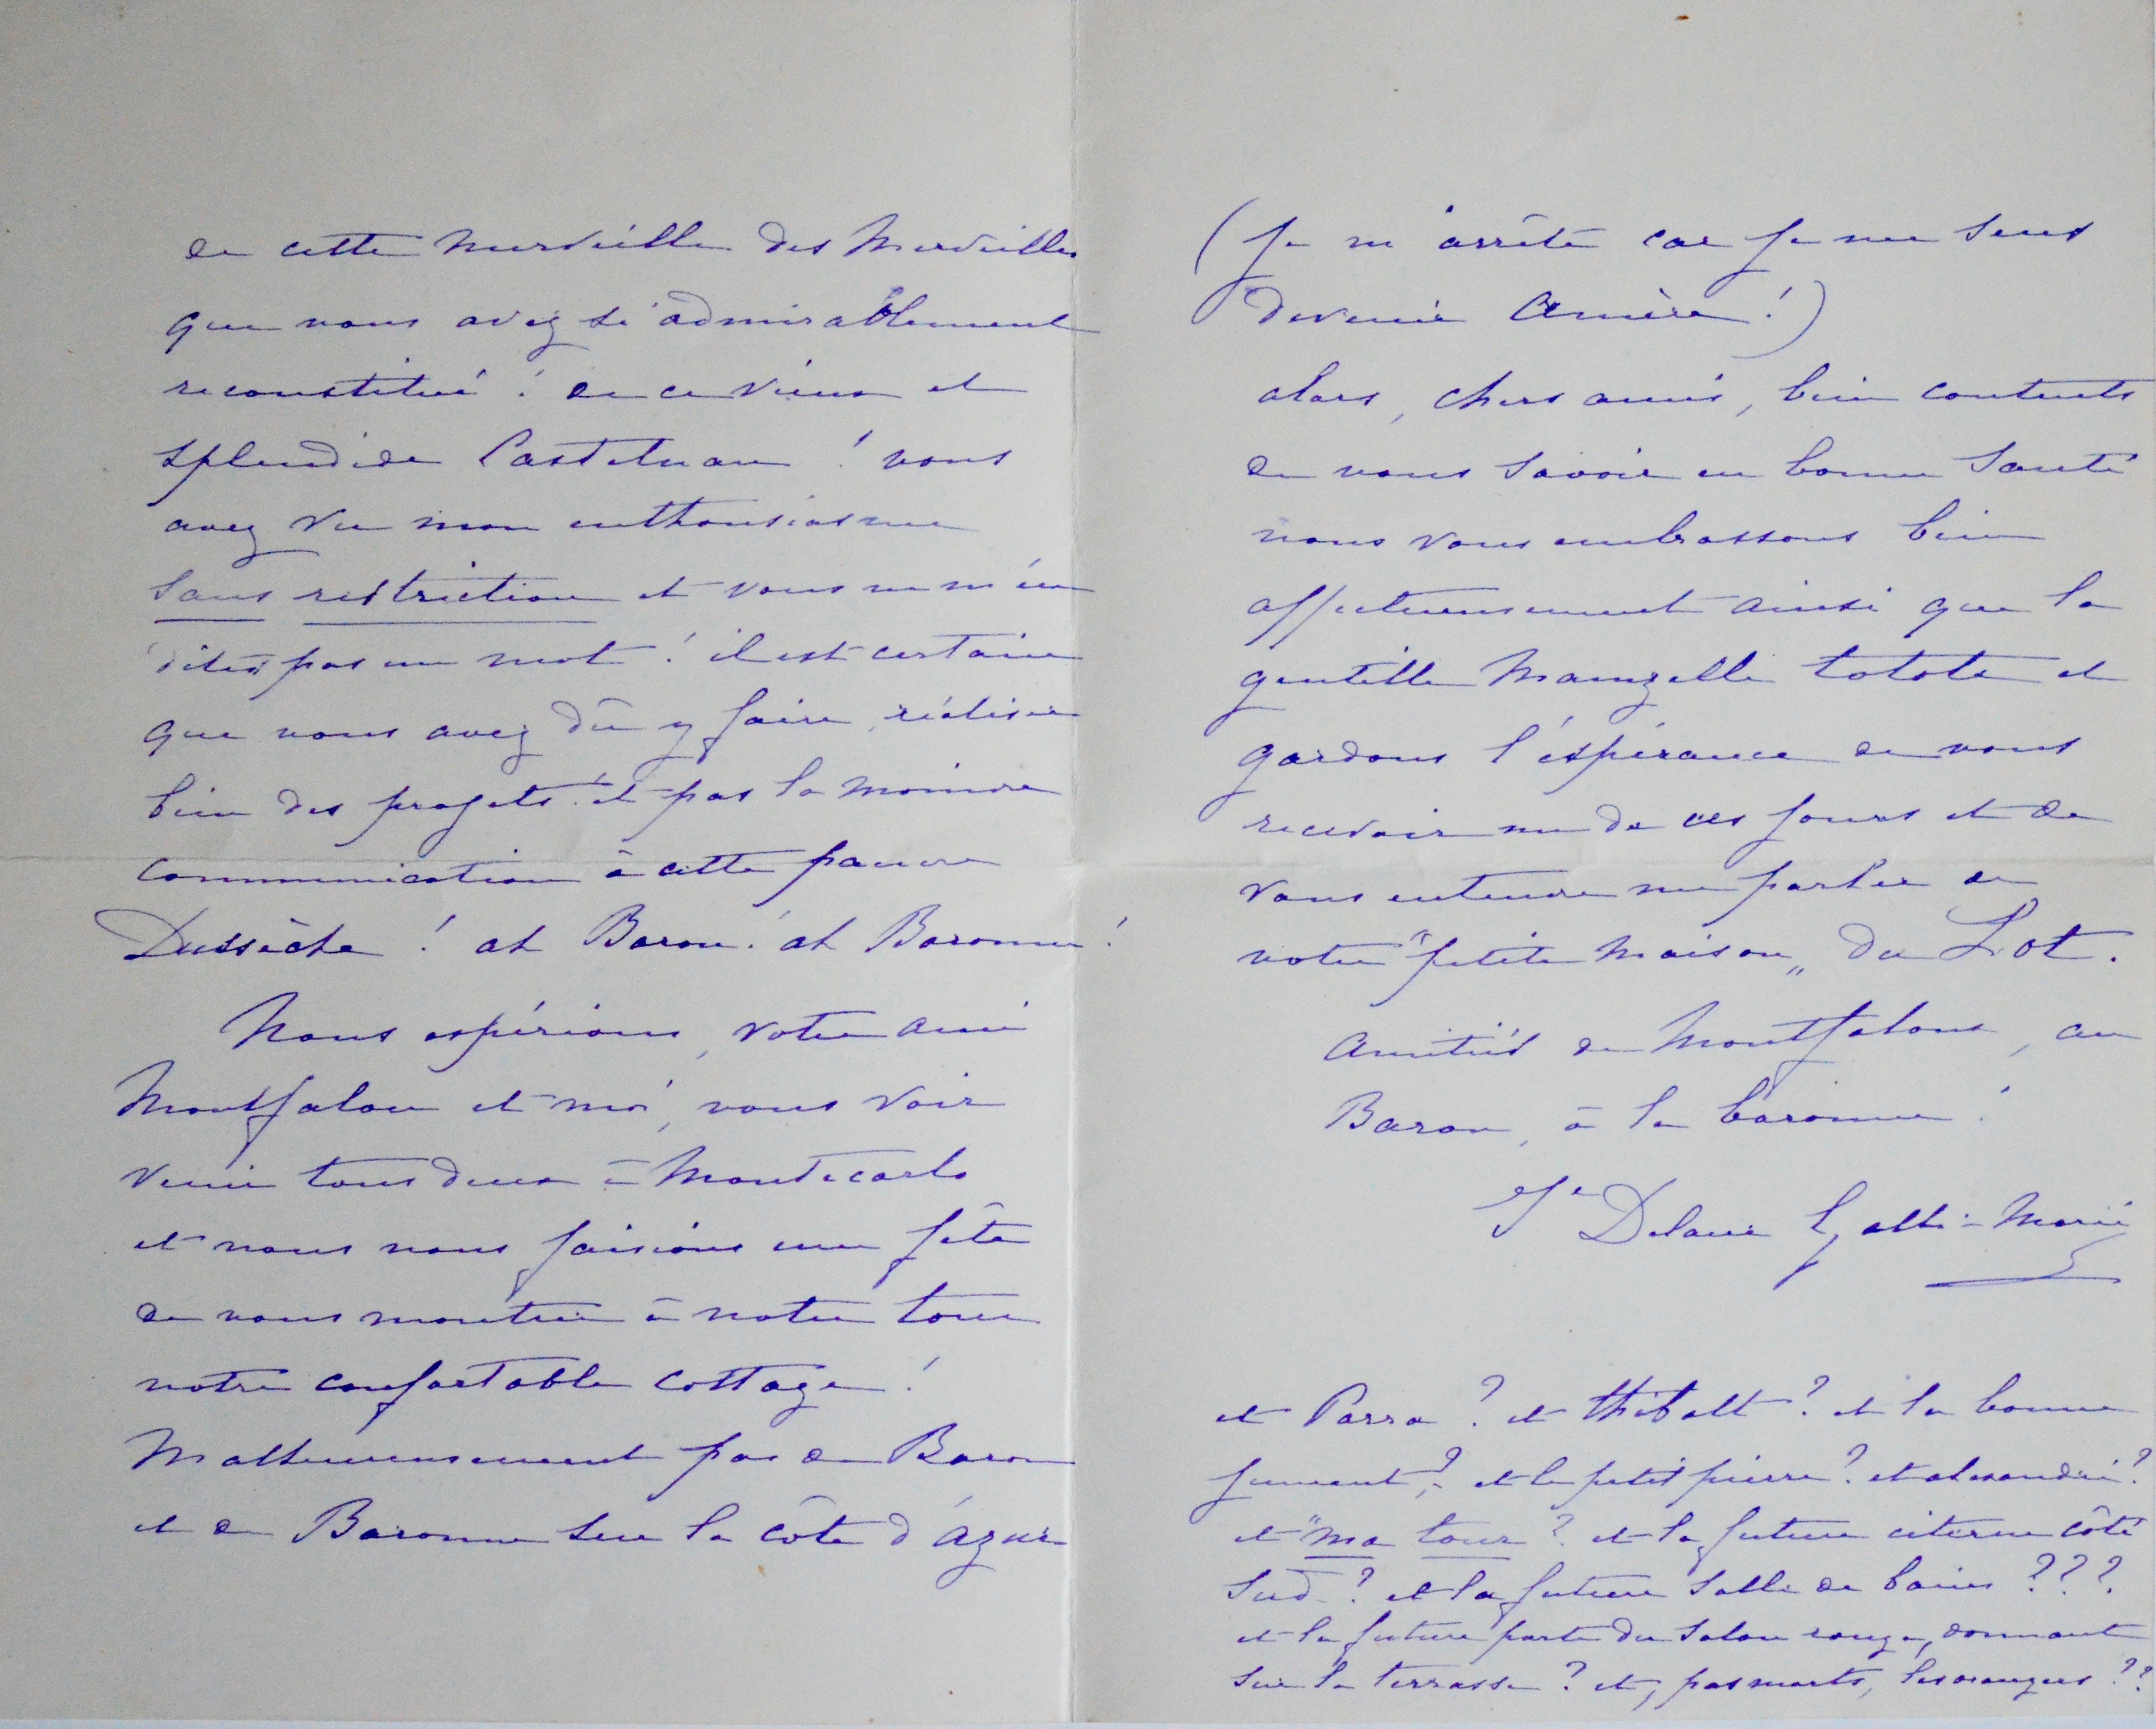 de cette merveille des merveilles
que vous avez si admirablement
reconstitué ! de ce vieux et
splendide Castelnau ! vous
avez vu mon enthousiasme
sans restriction et vous ne m'en
dites pas un mot ! il est certain
que vous avez dû y faire, réaliser
bien des projets ! et pas la moindre
communication à cette pauvre
Dussèche ! ah Baron ! ah Baronne !
Nous espérions, votre ami
Montjalon et moi, vous voir
venir tous deux à Monte carlo
et nous nous faisions une fête
de vous montrer à notre tour
notre confortable cottage !
Malheureusement pas de Baron
et de Baronne sur la côte d'Azur
(je m'arrête car je me sens
devenir amère !)
alors, chers amis, bien contents
de vous savoir en bonne santé
nous vous embrassons bien
affectueusement ainsi que la
gentille Mamzelle totote et
gardons l'éspérance de vous
recevoir un de ces jours et de
vous entendre me parler de
votre "petite maison" du Lot.
Amitiés de Montjalons, au
Baron, à la baronne !
Delaire Galli-Marié
et Parra ? et thibalt ? et la bonne
jument ? et le petit pierre ? et alexandrie ?
et "ma tour ? et la future citerne côté
Sud ? et la future salle de bains ???
et la future porte du salon rouge, donnant
sur la terrasse ? et, pas morts, les orangers ??